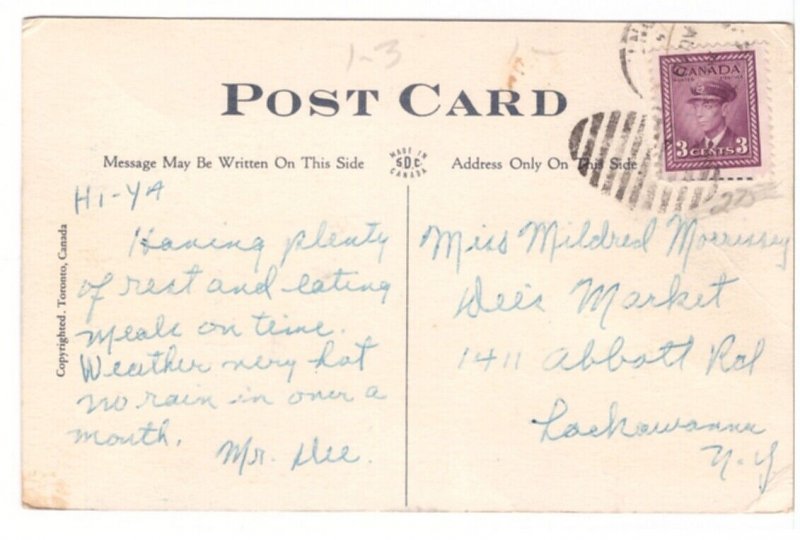 1-3
POST CARD
CANADA
POSTES POSTAGE
3 CENTS 3
Message May Be Written On This Side
MADE IN
S.D.C.
CANADA
Address Only On This Side
225
Copyrighted. Toronto, Canada
HI-YA
Having plenty
of rest and eating
meals on time.
Weather very hot
no rain in over a
month.
Mr. Dee.
Miss Mildred Morrissey
Dee's Market
1411 Abbott Rd
Lackawanna
N.Y